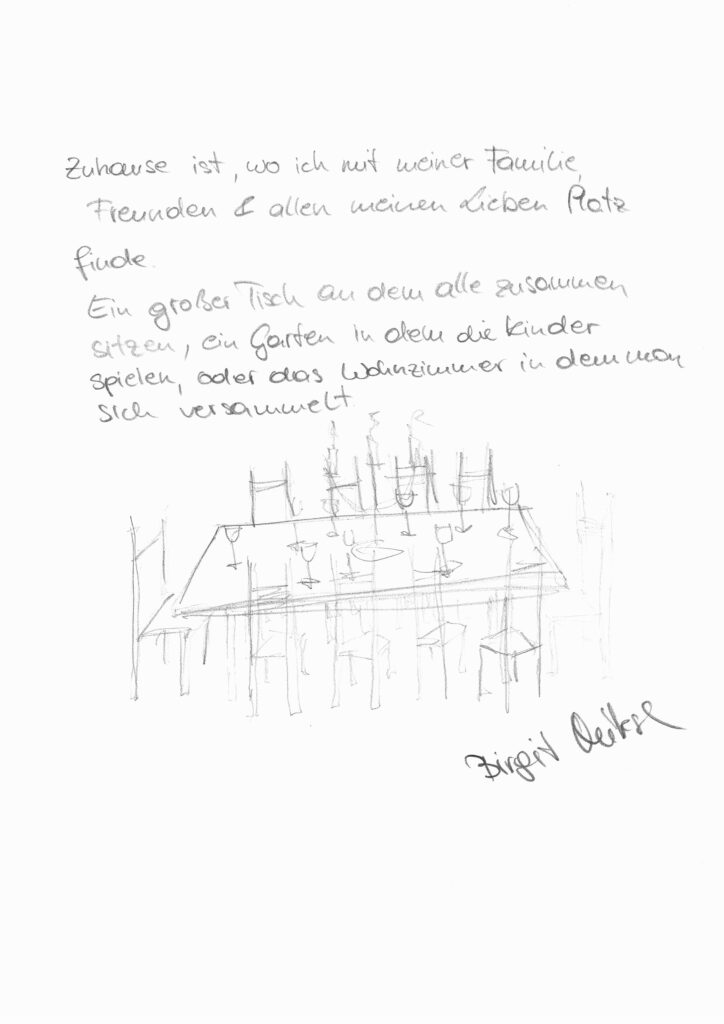 Zuhause ist, wo ich mit meiner Familie,
Freunden & allen meinen Lieben Platz
finde.
Ein großer Tisch an dem alle zusammen
sitzen, ein Garten in dem die Kinder
spielen, oder das Wohnzimmer in dem man
sich versammelt.
Birgit